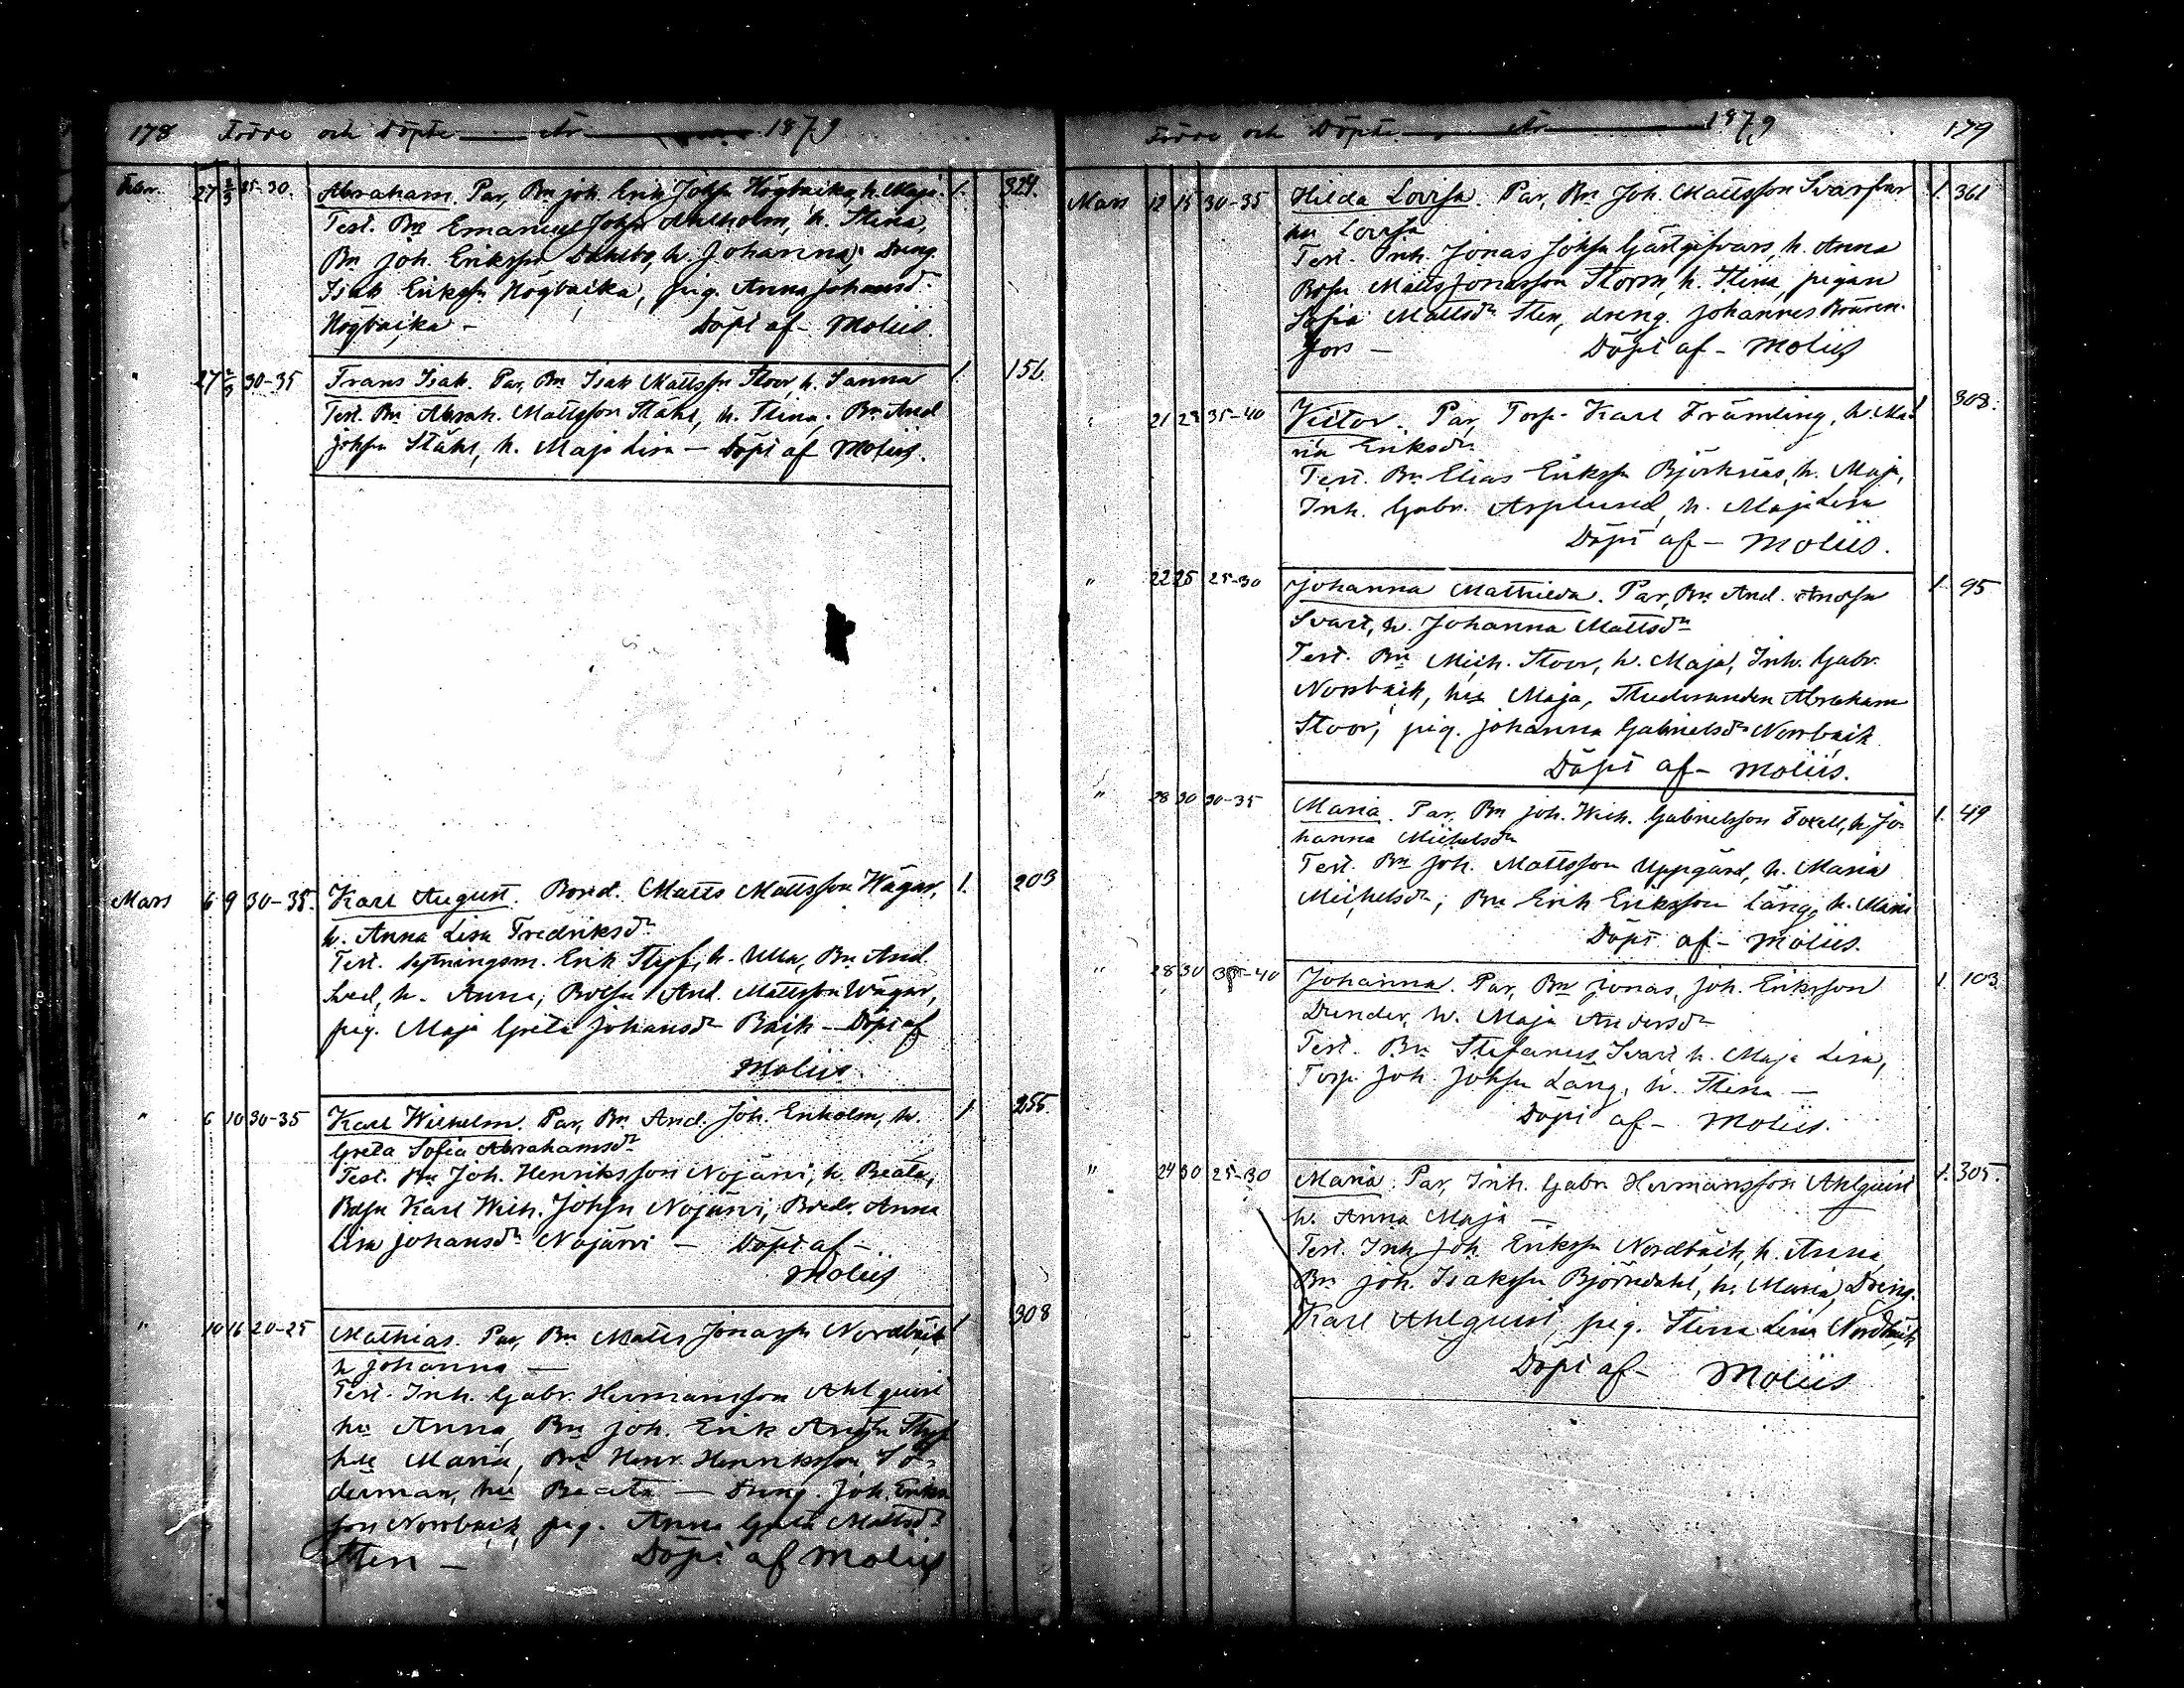 178 Födde och Döpte År 1879
Febr. 27 2/3 25-30. Abraham. Par, Bn Joh. Erik Johsn Högbacka, h. Maja 1. 324.
Test. Bn Emanuel Johsn Ahlholm, h. Stina,
Bn Joh. Eriksson Dahlbo, h. Johanna; Dreng.
Isak Eriksn Högbacka, pig. Anna Johansdr
Högbacka - Döpt af - Moliis.
" 27 2/3 30-35 Frans Isak. Par, Bn Isak Mattsn Stoor, h. Sanna 1. 156.
Test. Bn Abrah. Mattsson Ståhl, h. Stina; Bn And
Johsn Ståhl, h. Maja Lisa - Döpt af Moliis.
Mars 6 9 30-35. Karl August. Bond. Matts Mattsson Wägar, 1. 203
h. Anna Lisa Fredriksdr
Test. Sytningsm. Erik Styf, h. Ulla, Bn And.
Sved, h. Anna, Bdsn And. Mattsson Wägar,
pig. Maja Greta Johansdr Back - Döpt af
Moliis
" 6 10 30-35 Karl Wilhelm. Par, Bn And. Joh. Enholm, h. 1. 255.
Greta Sofia Abrahamsdr
Test. Bn Joh. Henriksson Nojärvi, h. Beata,
Bdsn Karl Wilh. Johsn Nojärvi, Bondr. Anna
Lisa Johansdr Nojärvi - Döpt af -
Moliis
" 10 16 20-25 Mathias. Par, Bn Matts Jonassn Nordbäck 1 308
h Johanna -
Test. Inh. Gabr. Hermansson Ahlqvist
hu Anna, Bn Joh. Erik Andsn Styf
hu Maria, Bn Henr. Henriksson Sö-
derman, hu Beata - Dreng. Joh. Eriks
son Norrback, pig. Anna Greta Mattsdr
Sten - Döpt af Moliis
Födde och Döpte År 1879 179
Mars 12 15 30-35 Hilda Lovisa. Par, Bn Joh. Mattsson Svarfvar 1. 361
hu Lovisa
Test. Inh. Jonas Johsn Gästgifvars, h. Anna
Bdsn Matts Jonasson Storm, h. Stina, pigan
Sofia Mattsdr Sten, dreng. Johannes
fors - Döpt af - Moliis
" 21 23 35-40 Victor. Par, Torp. Karl Främling, h. Ma- 1 308.
ria Eriksdr
Test. Bn Elias Eriksn Björknäs, h. Maja,
Inh. Gabr. Asplund, h. Maja Lisa
Döpt af - Moliis.
" 22 25 25-30 Johanna Mathilda. Par, Bn And. Andsn 1. 95
Svart, h. Johanna Mattsdr
Test. Bn Mich. Stoor, h. Maja, Inh. Gabr.
Norrback, hu Maja, Studeranden Abraham
Stoor, pig. Johanna Gabrielsdr Norrback
Döpt af - Moliis.
" 28 30 30-35 Maria. Par, Bn Joh. Wilh. Gabrielsson Foxell, h. Jo- 1. 49
hanna Michelsdr
Test. Bn Joh. Mattsson Uppgård, h. Maria
Michelsdr, Bn Erik Eriksson Lång, h. Maria
Döpt af - Moliis.
" 28 30 35-40 Johanna. Par, Bn Jonas, Joh. Eriksson 1. 103
Dunder, h. Maja Andersdr
Test. Bn Stefanus Svart h. Maja Lisa,
Torp. Joh. Johsn Lång, h. Stina -
Döpt af - Moliis.
" 24 30 25-30 Maria. Par, Inh. Gabr Hermansson Ahlqvist 1. 305.
h. Anna Maja -
Test. Inh Joh Eriksn Nordbäck, h. Anna,
Bn Joh. Isaksn Björndahl, h. Maria, Dreng.
Karl Ahlqvist, pig. Stina Lisa Nordbäck
Döpt af - Moliis